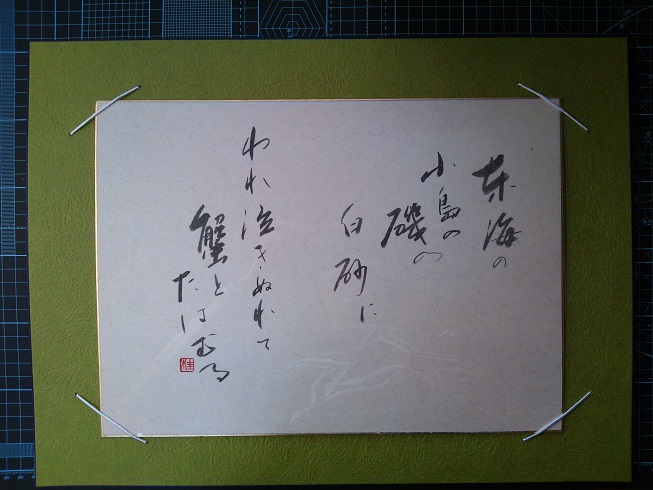 東海の
小島の
磯の
白砂に
われ泣きぬれて
蟹と
たはむる